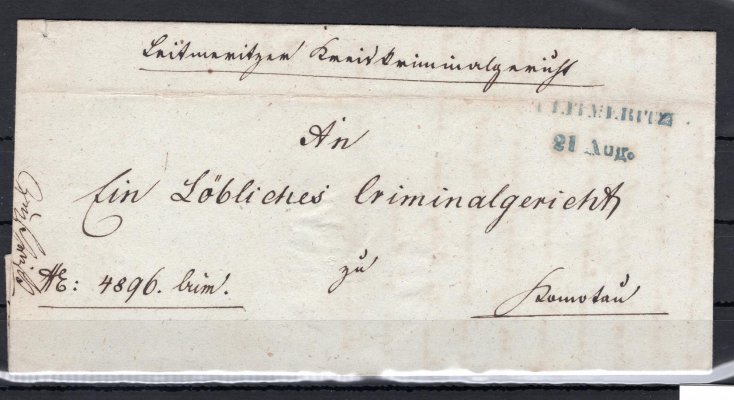 Leitmeritzer Kreiskriminalgericht
LEITMERITZ
21 Aug.
An
Ein Löbliches Criminalgericht
zu
Komotau
№: 4896. Crim.